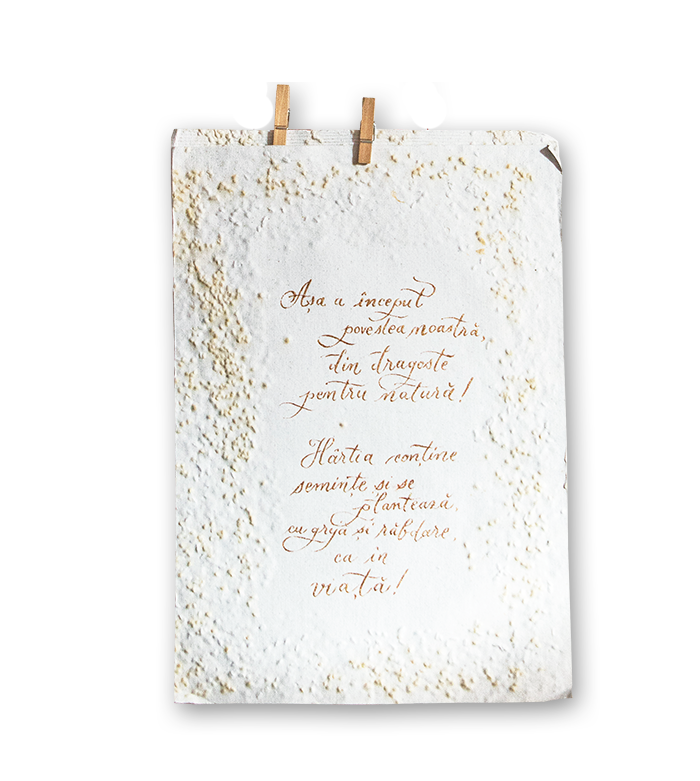 Așa a început
povestea noastră,
din dragoste
pentru natură!
Hârtia conține
semințe și se
plantează,
cu grijă și răbdare,
ca în
viață!